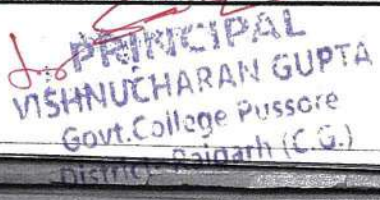 PRINCIPAL
VISHNUCHARAN GUPTA
Govt.College Pussore
District Raigarh (C.G.)